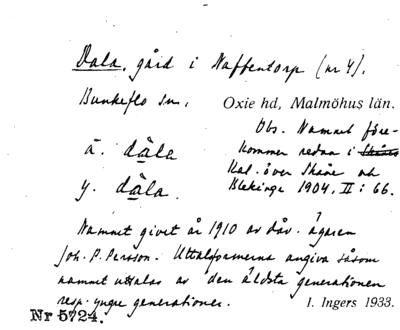 Dala, gård i Naffentorp (nr 4),
Bunkeflo sn., Oxie hd, Malmöhus län.
Obs. Namnet före-
ä. dàla kommer redan i Skånes
Kal. över Skåne och
y. dàla. Blekinge 1904, II: 66.
Namnet givet år 1910 av dåv. ägaren
Joh. P. Persson. Uttalsformerna angiva såsom
namnet uttalas av den äldsta generationen
resp. yngre generationer. I. Ingers 1933.
Nr 5724.